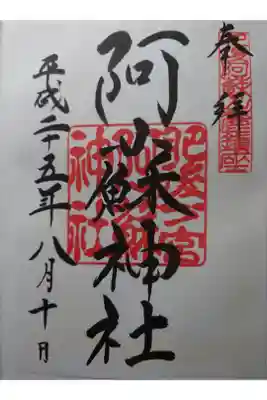 奉拝
阿蘇神社
平成二十五年八月十日
肥後一宮
阿蘇
神社